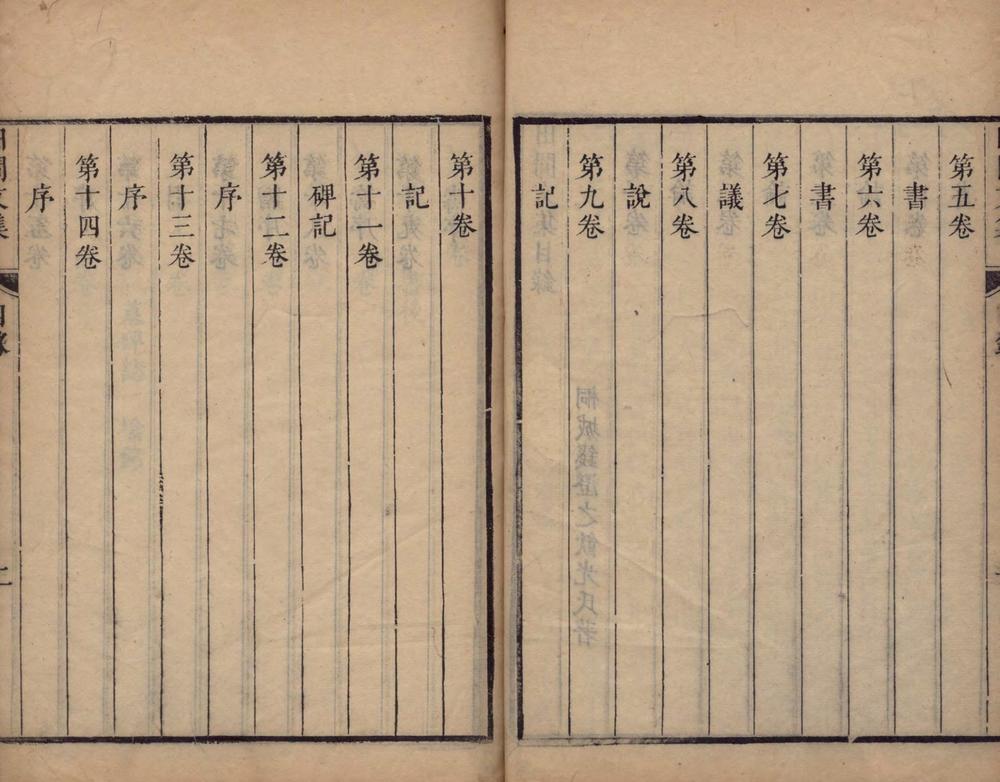 第五卷
書
第六卷
書
第七卷
議
第八卷
說
第九卷
記
第十卷
記
第十一卷
碑記
第十二卷
序
第十三卷
序
第十四卷
序